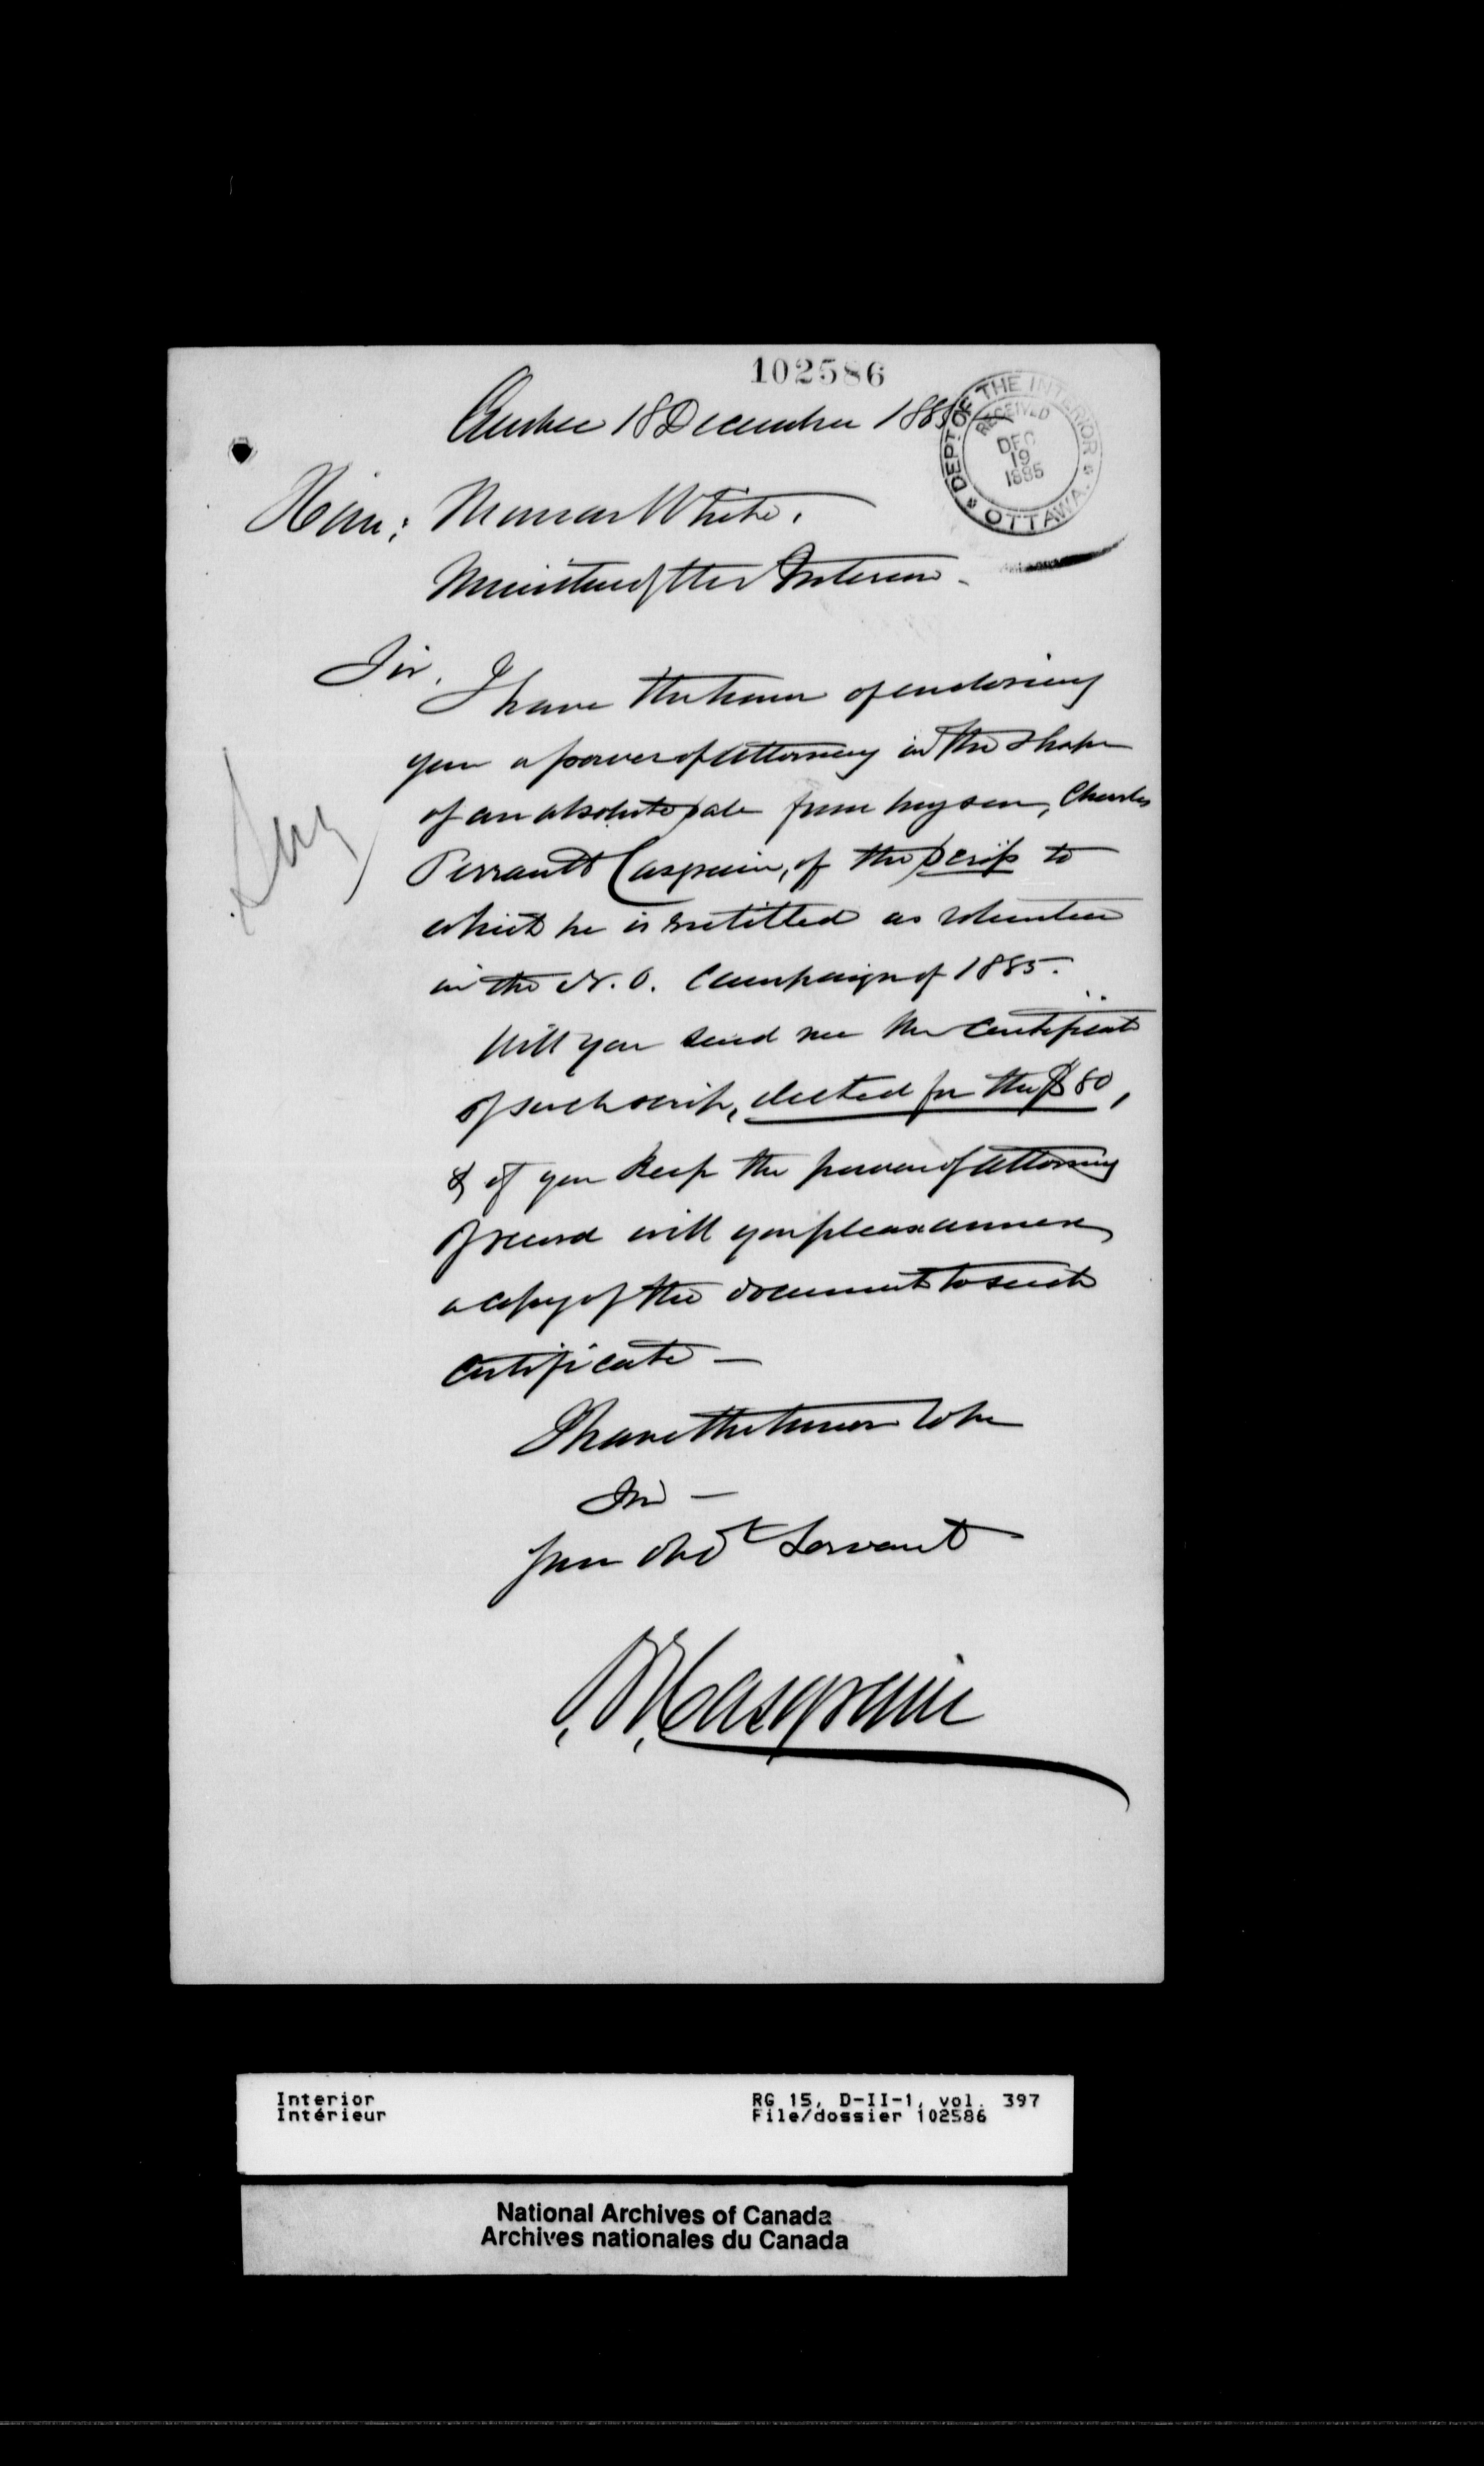 102586
Quebec 18 December 1885
DEPT. OF THE INTERIOR
RECEIVED
DEC
19
1885
OTTAWA.
Hon: Thomas White.
Minister of the Interior -
Sir,
I have the honor of enclosing
you a power of attorney in the shape
of an absolute sale from my son, Charles
Perrault Casgrain, of the scrip to
which he is entitled as volunteer
in the N. O. Campaign of 1885.
Will you send me the certificate
of such scrip, elected for the $80,
& if you keep the power of attorney
of record will you please annex
a copy of the document to such
certificate —
I have the honor to be
Sir —
Your obdt Servant
Casgrain
Interior
Intérieur
RG 15, D-II-1, vol. 397
File/dossier 102586
National Archives of Canada
Archives nationales du Canada